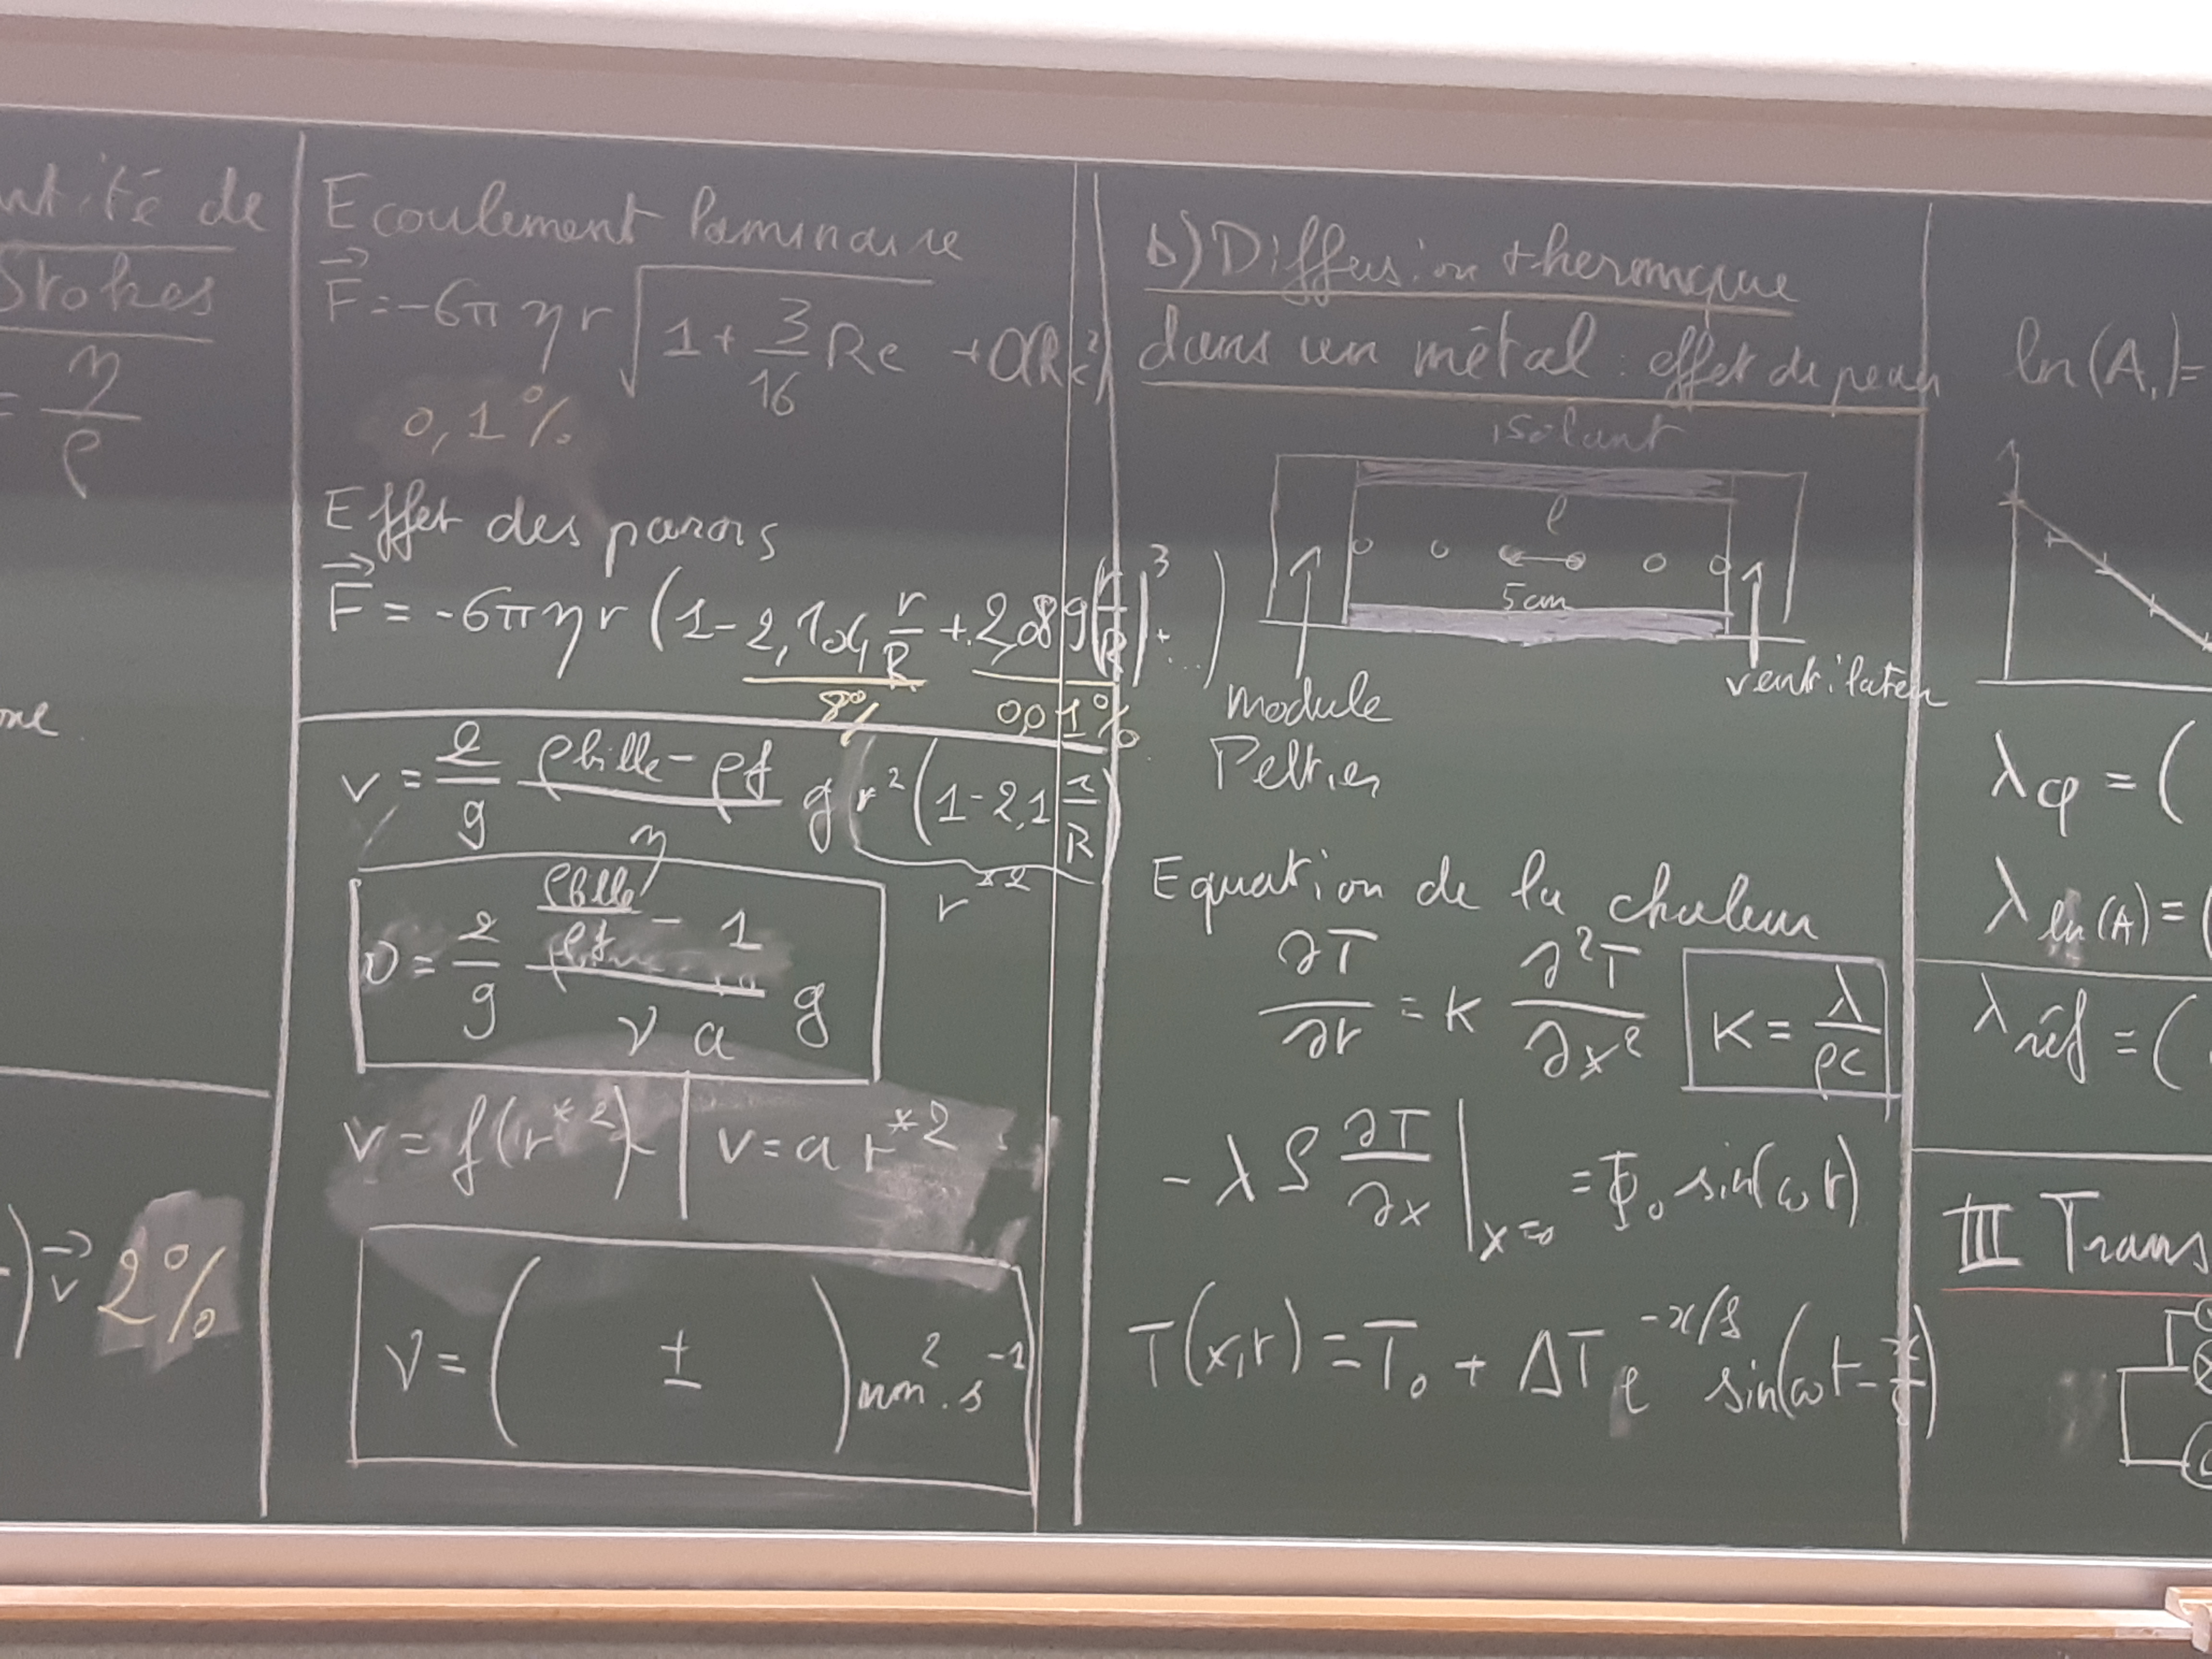 ntité de
Stokes
= η/ρ
)v⃗ 2%
Ecoulement laminaire
F⃗ = -6π η r √(1 + 3/16 Re + O(Re²)
0,1%
Effet des parois
F⃗ = -6π η r (1 - 2,104 r/R + 2,089 (r/R)³ + ...)
8% 0,01%
v = 2/9 (ρbille - ρf)/η g r² (1 - 2,1 r/R)
r*²
ν = 2/9 (ρbille/ρf - 1)/(ν a) g
v = f(r*²) | v = a r*²
ν = ( ± ) mm².s⁻¹
b) Diffusion thermique
dans un métal : effet de peau
isolant
l
5cm
ventilateur
module
Peltier
Equation de la chaleur
∂T/∂t = K ∂²T/∂x² K = λ/ρc
-λ S ∂T/∂x |x=0 = Φ₀ sin(ωt)
T(x,t) = T₀ + ΔT e^(-x/δ) sin(ωt - x/δ)
ln(A₁) =
λφ = (
λln(A) = (
λréf = (
III Trans